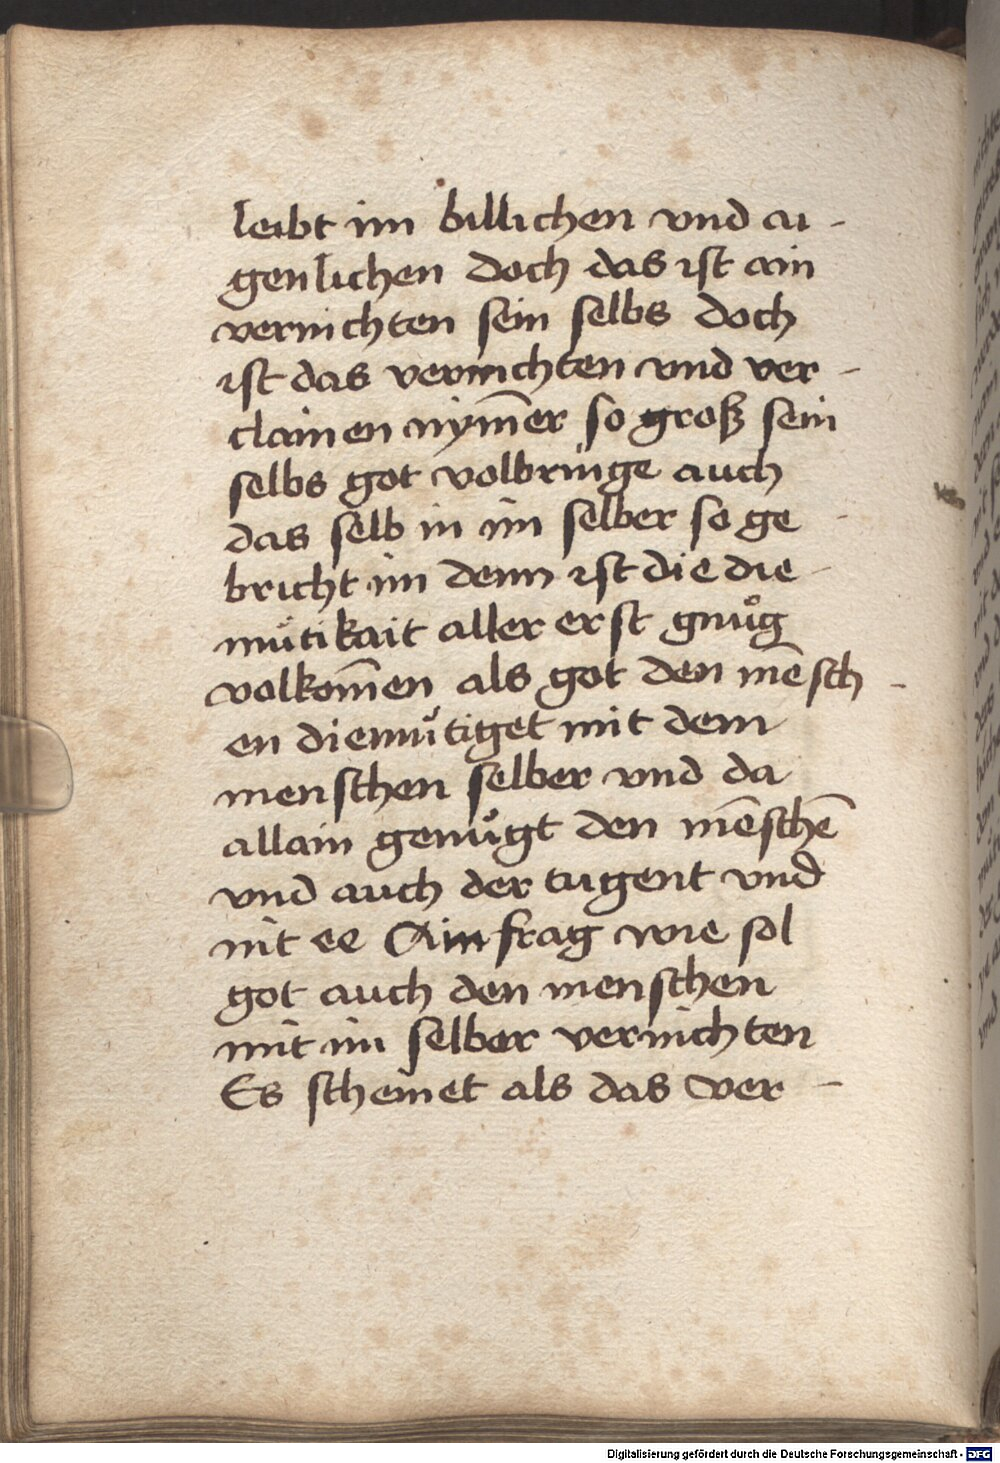 leibt im billichen vnd ai -
genlichen doch das ist ain
vernichten sein selbs doch
ist das vernichten vnd ver -
clainen nym̄er so groß sein
selbs got volbringe auch
das selb in im selber so ge -
bricht im denn ist die die -
mütikait aller erst gnuͦg
volkom̄en als got den mēsch -
en diemuͤtiget mit dem
menschen selber vnd da
allain genuͤgt den mēschē
vnd auch der tugent vnd
nit ee Ain frag wie sol
got auch den menschen
mit im selber vernichten
Es scheinet als das ver -
Digitalisierung gefördert durch die Deutsche Forschungsgemeinschaft - DFG